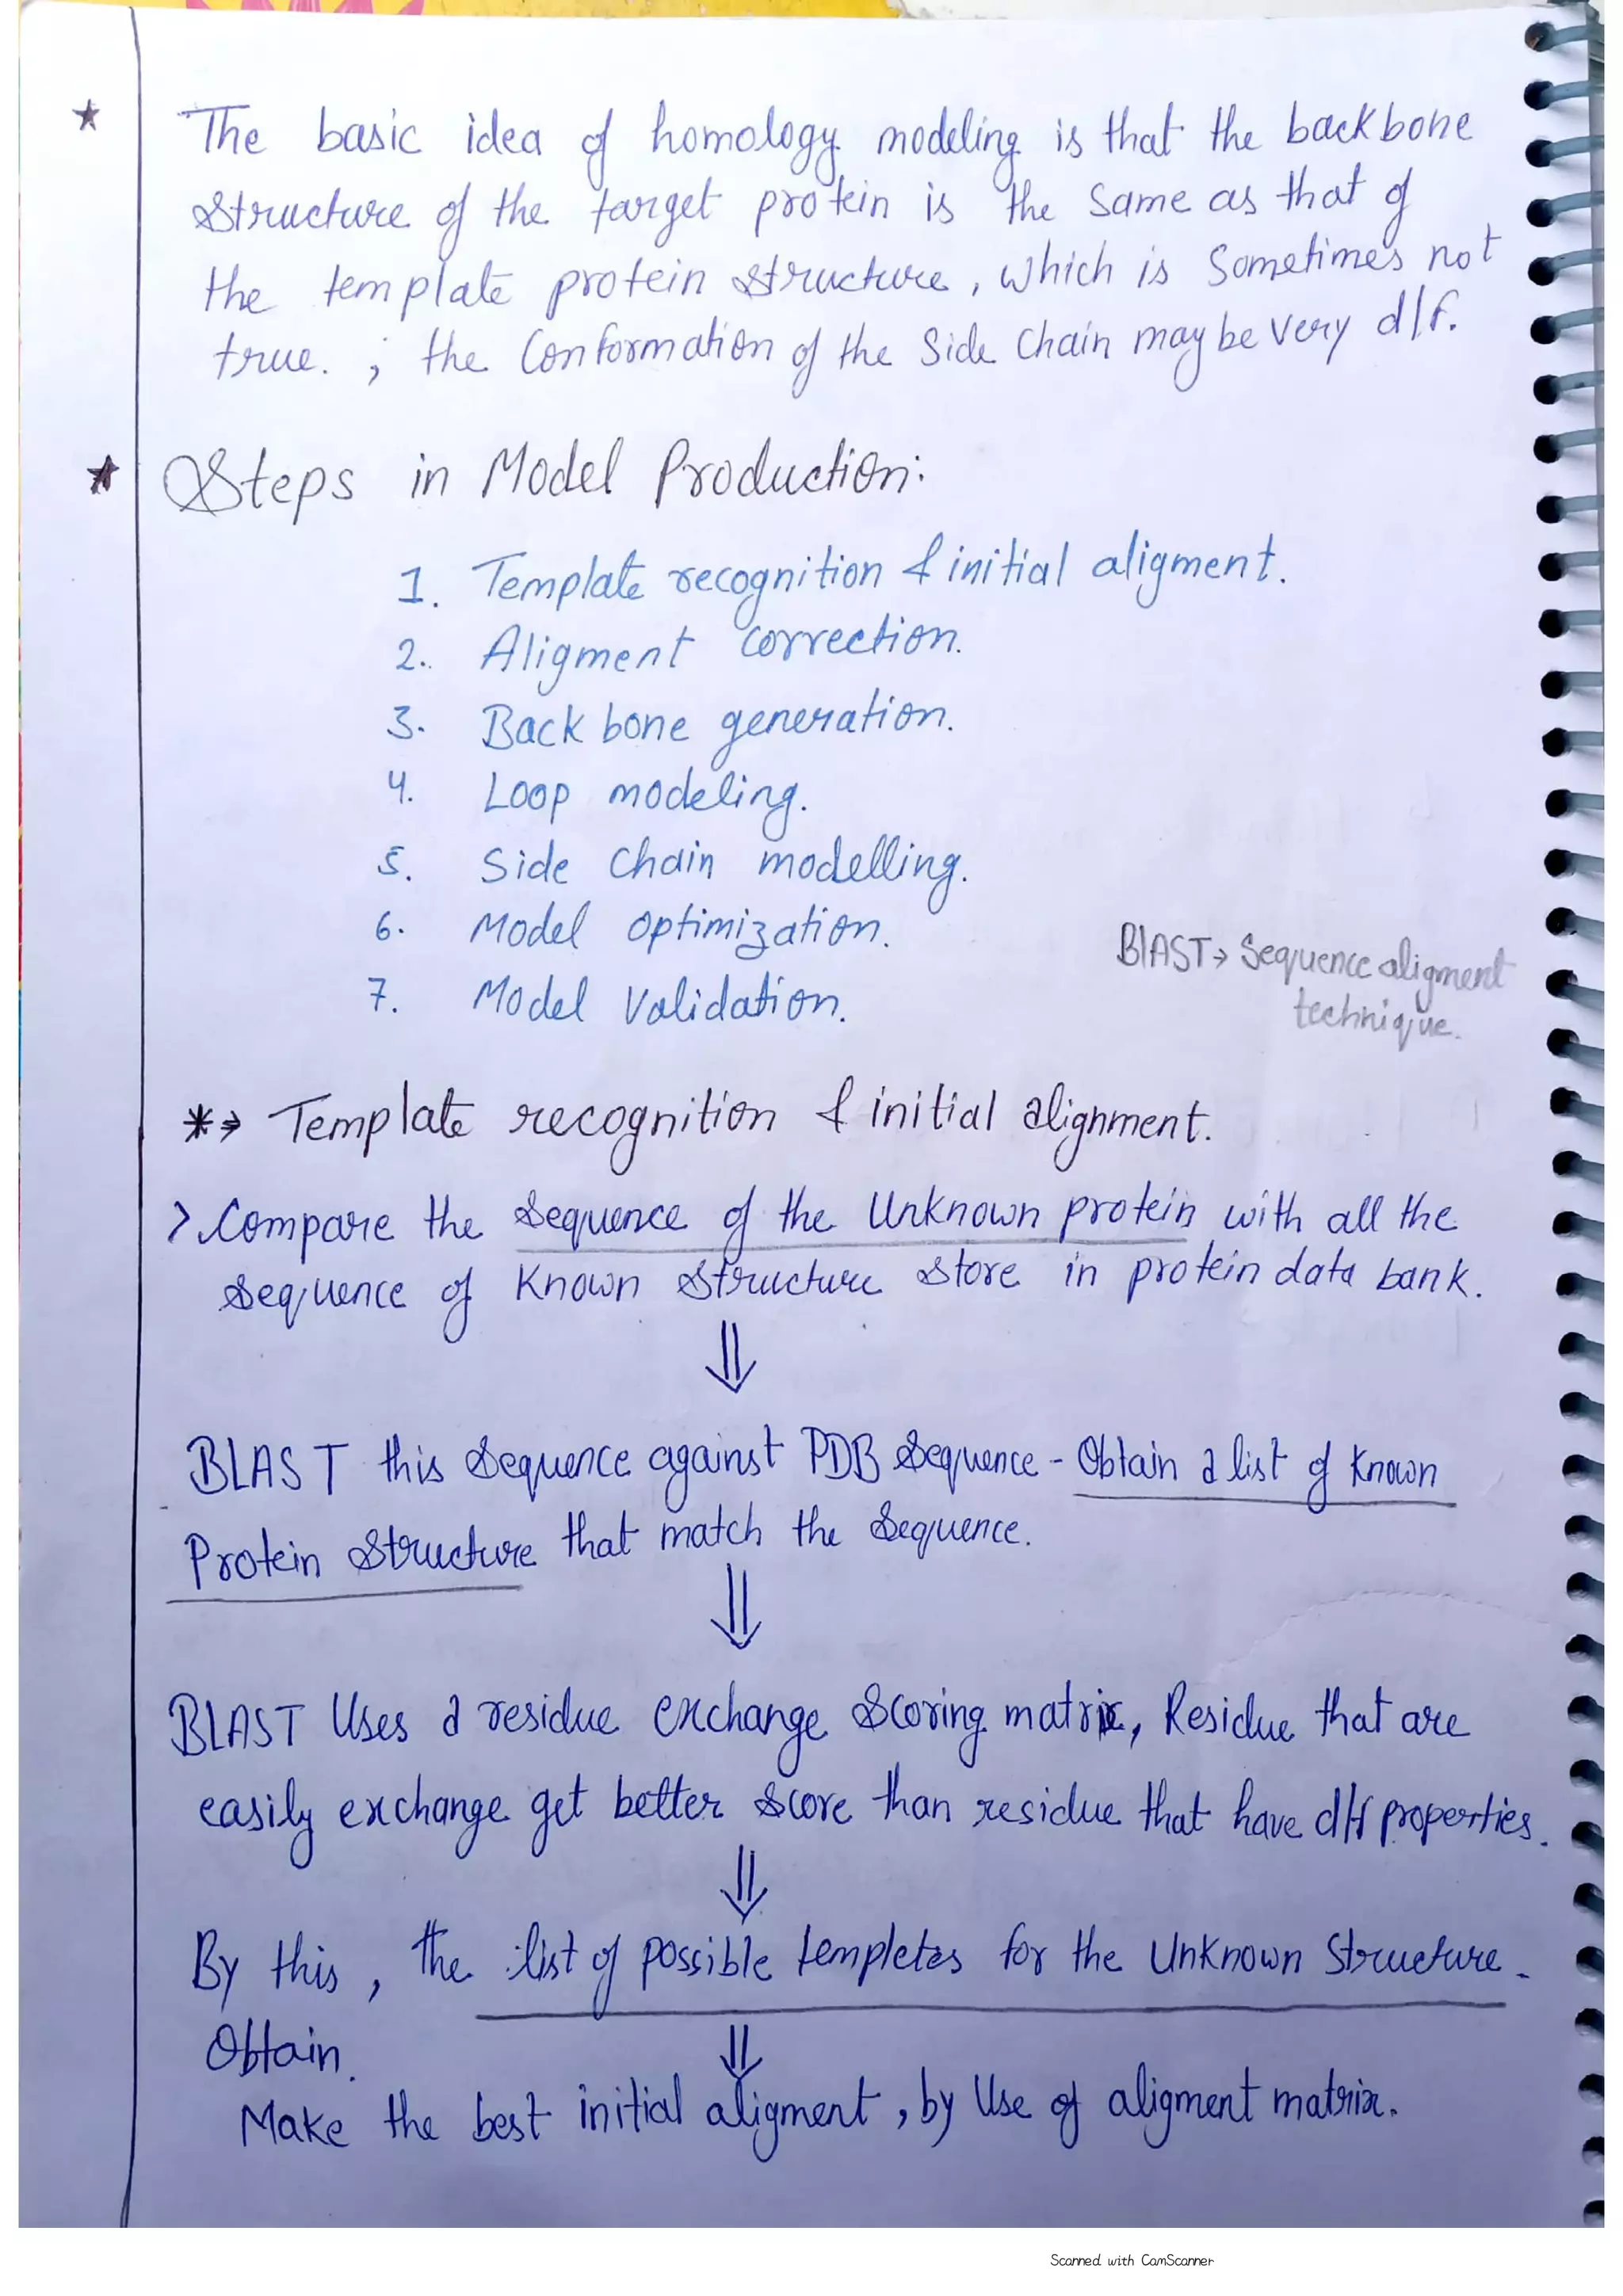 ★ The basic idea of homology modeling is that the backbone
structure of the target protein is the same as that of
the template protein structure, which is Sometimes not
true. ; the Conformation of the Side Chain may be Very d/f.
★ Steps in Model Production:
1. Template recognition & initial aligment.
2. Aligment correction.
3. Back bone generation.
4. Loop modeling.
5. Side Chain modelling.
6. Model optimization.
BlAST → Sequence aligment
7. Model Validation.
technique.
*⇒ Template recognition & initial alignment.
> Compare the sequence of the Unknown protein with all the
sequence of Known structure store in protein data bank.
⇓
BLAST this sequence against PDB sequence - Obtain a list of Known
Protein structure that match the sequence.
⇓
BLAST Uses a residue exchange scoring matrix, Residue that are
easily exchange get better score than residue that have d/f properties.
⇓
By this, the list of possible templetes for the Unknown Structure.
Obtain.
⇓
Make the best initial aligment, by Use of aligment matrix.
Scanned with CamScanner